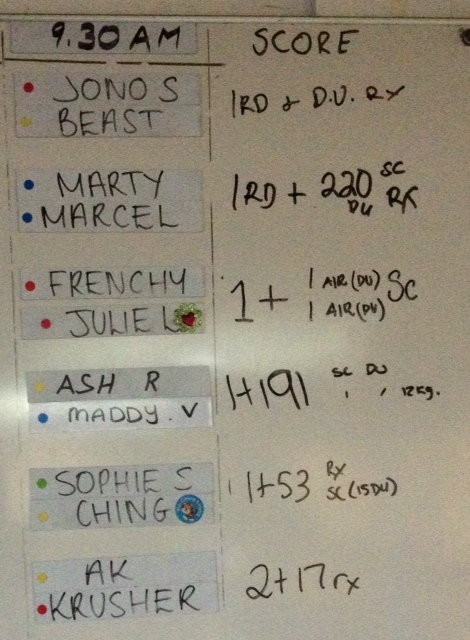 9.30 AM SCORE
JONO S
BEAST
1RD & D.U. RX
MARTY
MARCEL
1RD + 220 DU SC RX
FRENCHY
JULIE L
1 + 1 AIR (DU) SC
1 AIR (DU)
ASH R
MADDY. V
1+191 SC DU
12KG.
SOPHIE S
CHING
1+53 RX
SC (15DU)
AK
KRUSHER
2+17 rx